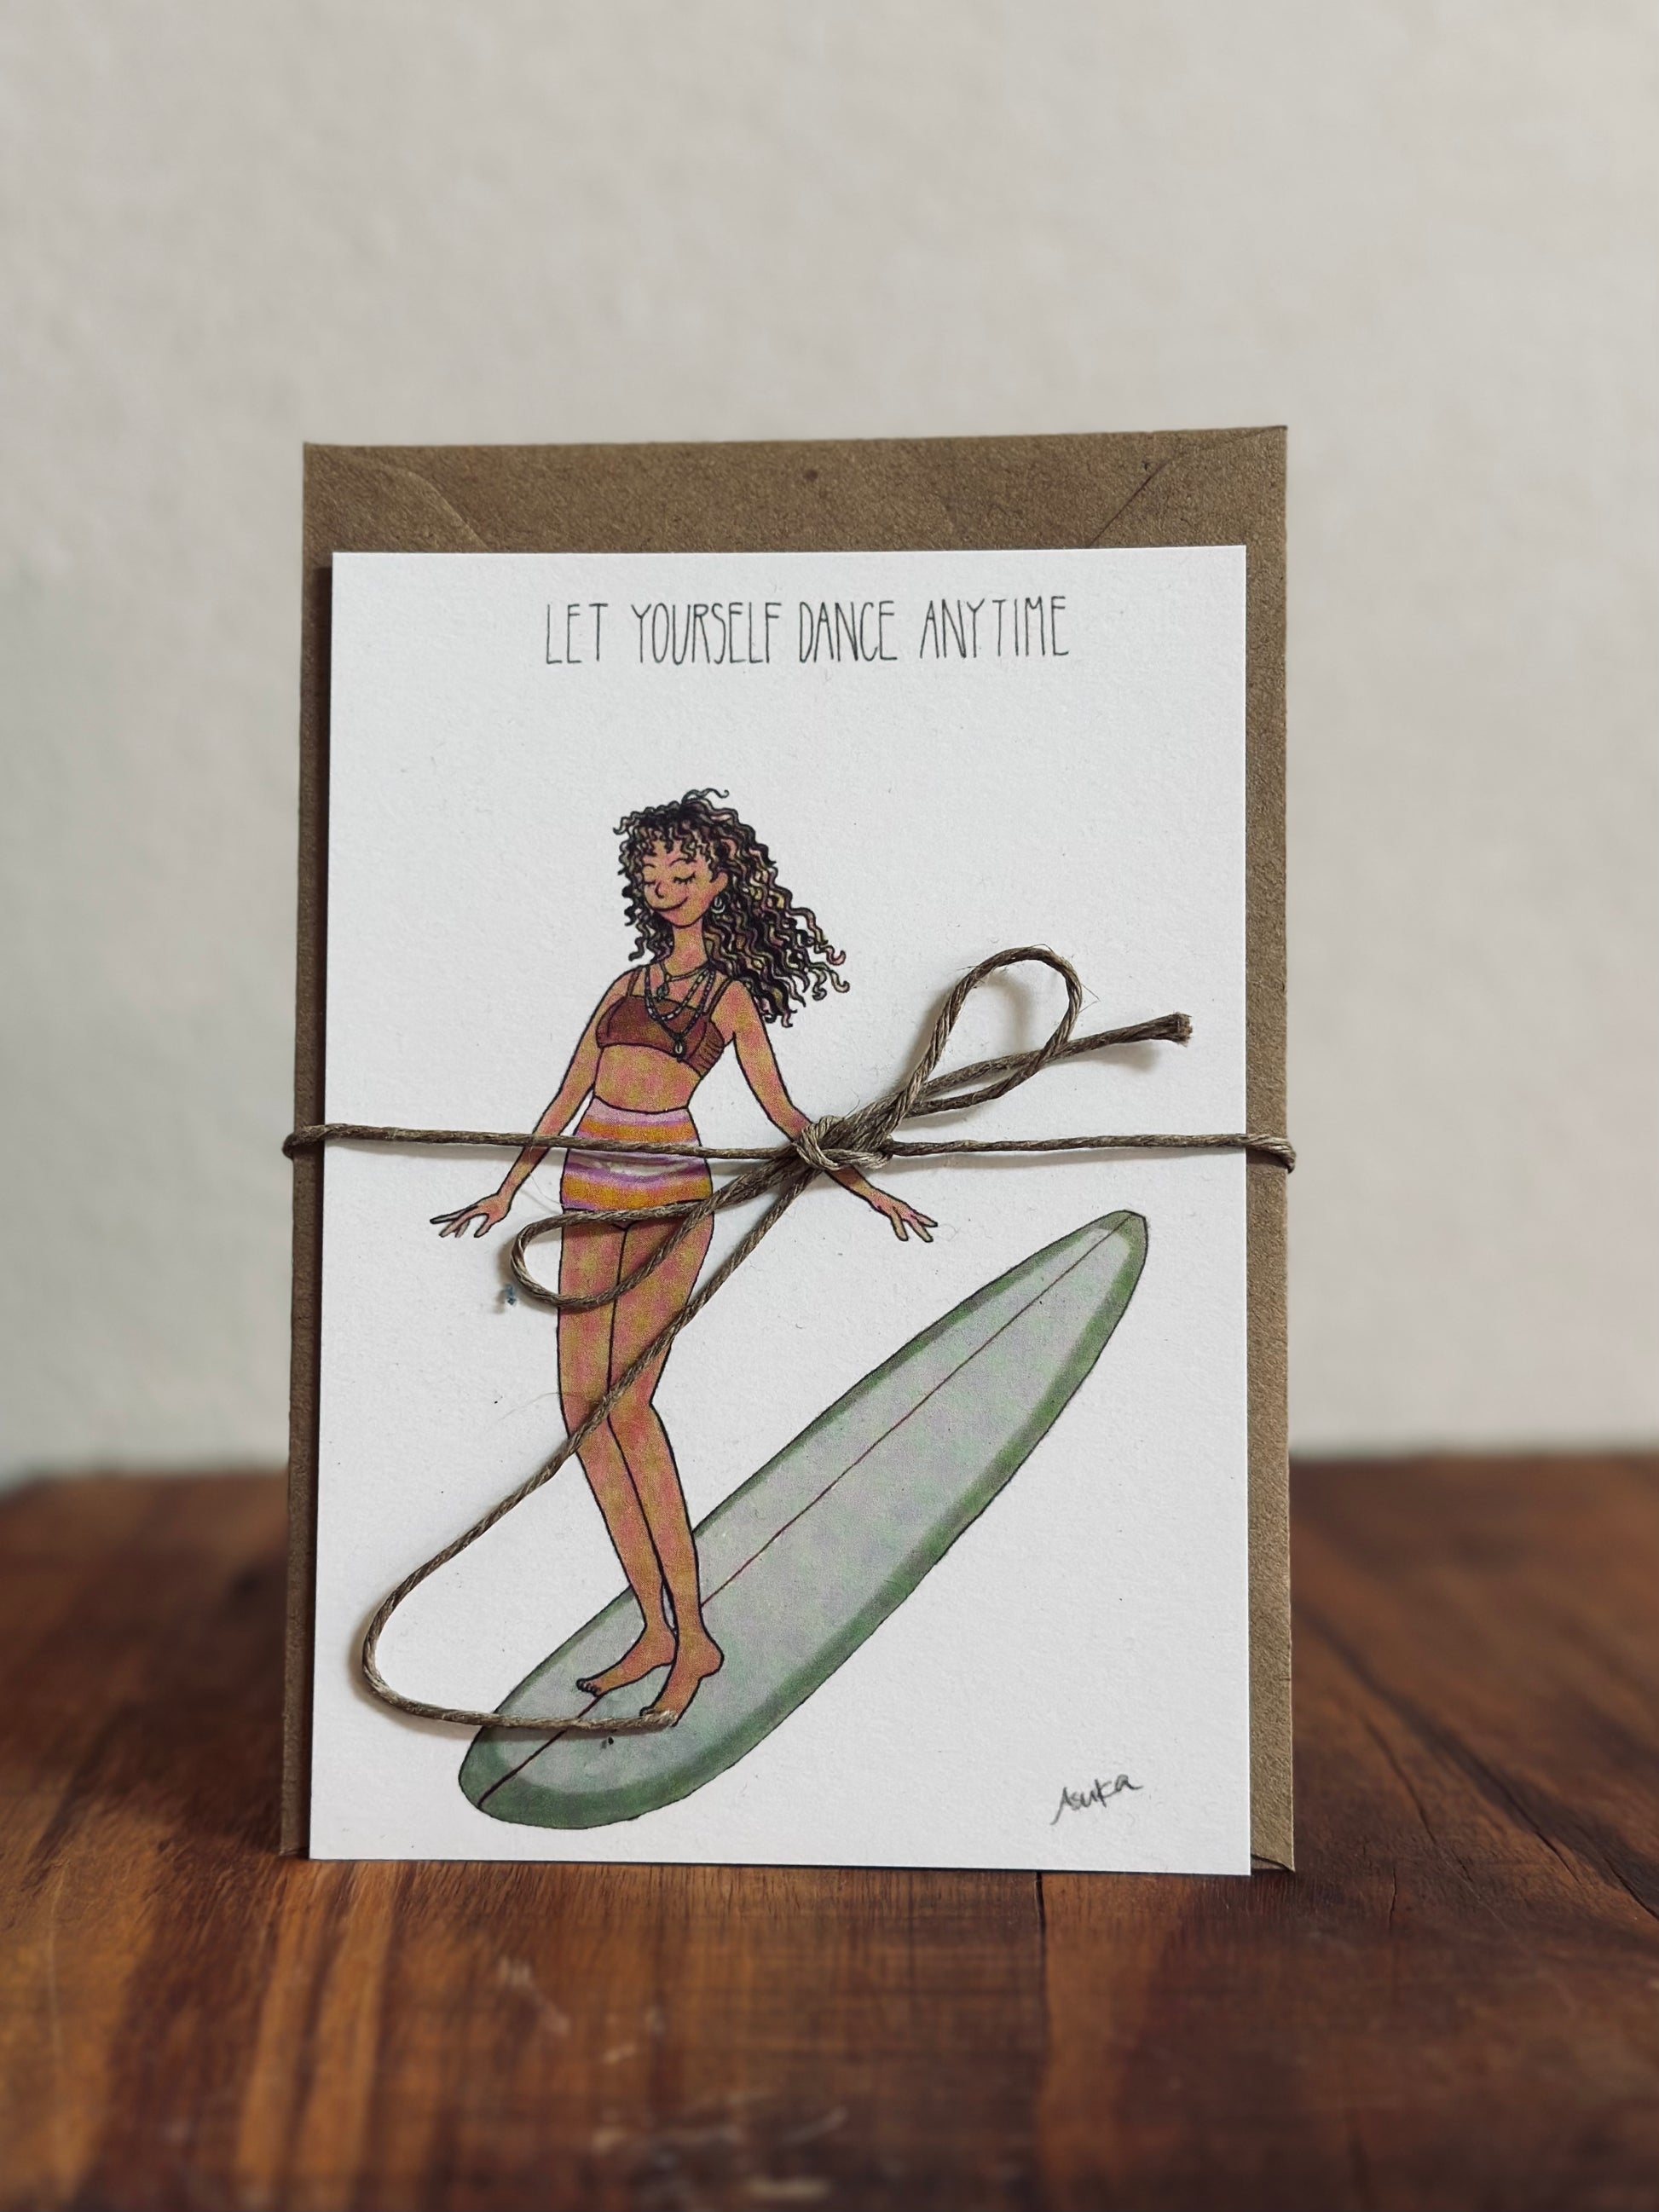 LET YOURSELF DANCE ANYTIME
Asuka